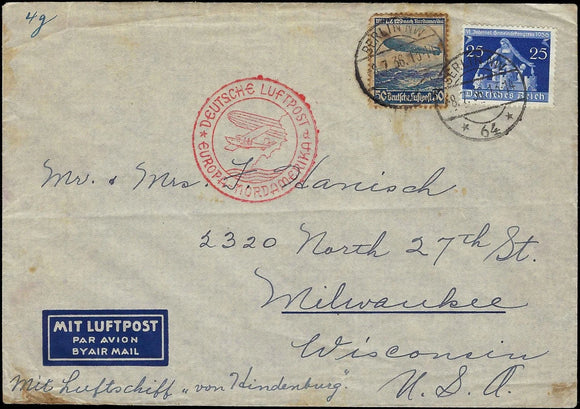 4g
LZ 129 nach Nordamerika
50 Deutsche Luftpost 50
VI. Internat. Gemeindekongress 1936
25 25
Deutsches Reich
BERLIN NW
7.36.
BERLIN NW
* 64 *
* DEUTSCHE LUFTPOST *
EUROPA-NORDAMERIKA
Mr. & Mrs. K. Hanisch
2320 North 27th St.
Milwaukee
Wisconsin
U.S.A.
MIT LUFTPOST
PAR AVION
BY AIR MAIL
Mit Luftschiff „von Hindenburg".